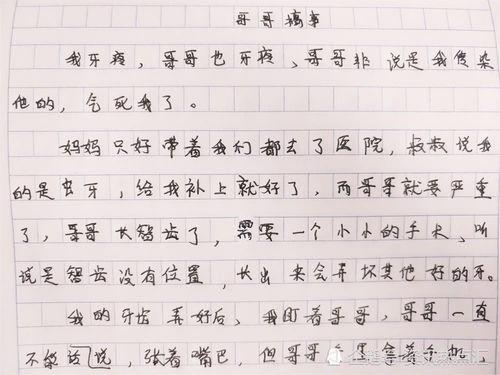 哥哥搞事
我牙疼，哥哥也牙疼，哥哥非说是我传染
他的，气死我了。
妈妈只好带着我们都去了医院，叔叔说我
的是虫牙，给我补上就好了，而哥哥就要严重
了，哥哥长智齿了，需要一个小小的手术，听
说是智齿没有位置，长出来会弄坏其他好的牙。
我的牙齿弄好后，我盯着哥哥，哥哥一直
不能话说，张着嘴巴，但哥哥